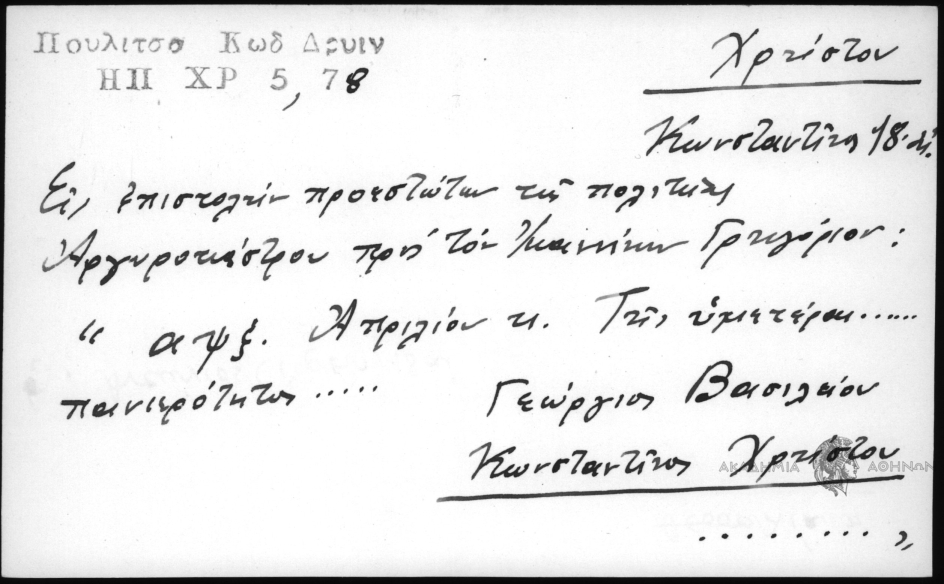 Πουλιτσα Κωδ Δρυιν
ΗΠ ΧΡ 5, 78
Χρήστου
Κωνσταντίνος 18. αἰ.
Εἰς ἐπιστολὴν προεστώτων τῆς πολιτείας
Ἀργυροκάστρου πρὸς τὸν Ἰωαννίνων Γρηγόριον:
“ αψξ. Ἀπριλίου κ. Τῆς ὑμετέρας......
πανιερότητος .....
Γεώργιος Βασιλείου
Κωνσταντῖνος Χρήστου
ΑΚΑΔΗΜΙΑ ΑΘΗΝΩΝ
......... „